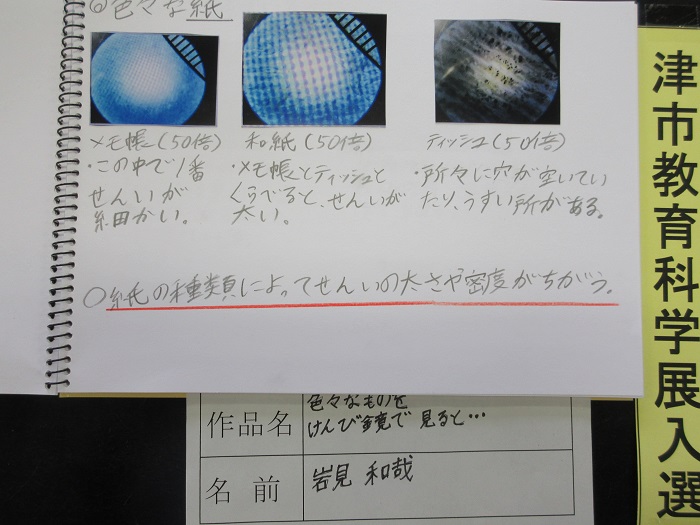 ◎色々な紙
メモ帳(50倍)
・この中で1番
せんいが
細かい。
和紙(50倍)
・メモ帳とティッシュと
くらべると、せんいが
太い。
ティッシュ(50倍)
・所々に穴が空いてい
たり、うすい所がある。
○紙の種類によってせんいの太さや密度がちがう。
作品名
色々なものを
けんび鏡で見ると…
名前
岩見 和哉
津市教育科学展入選